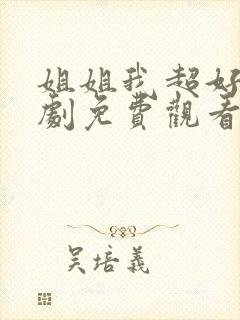 姐姐我超好
劇免費觀看
吳培義